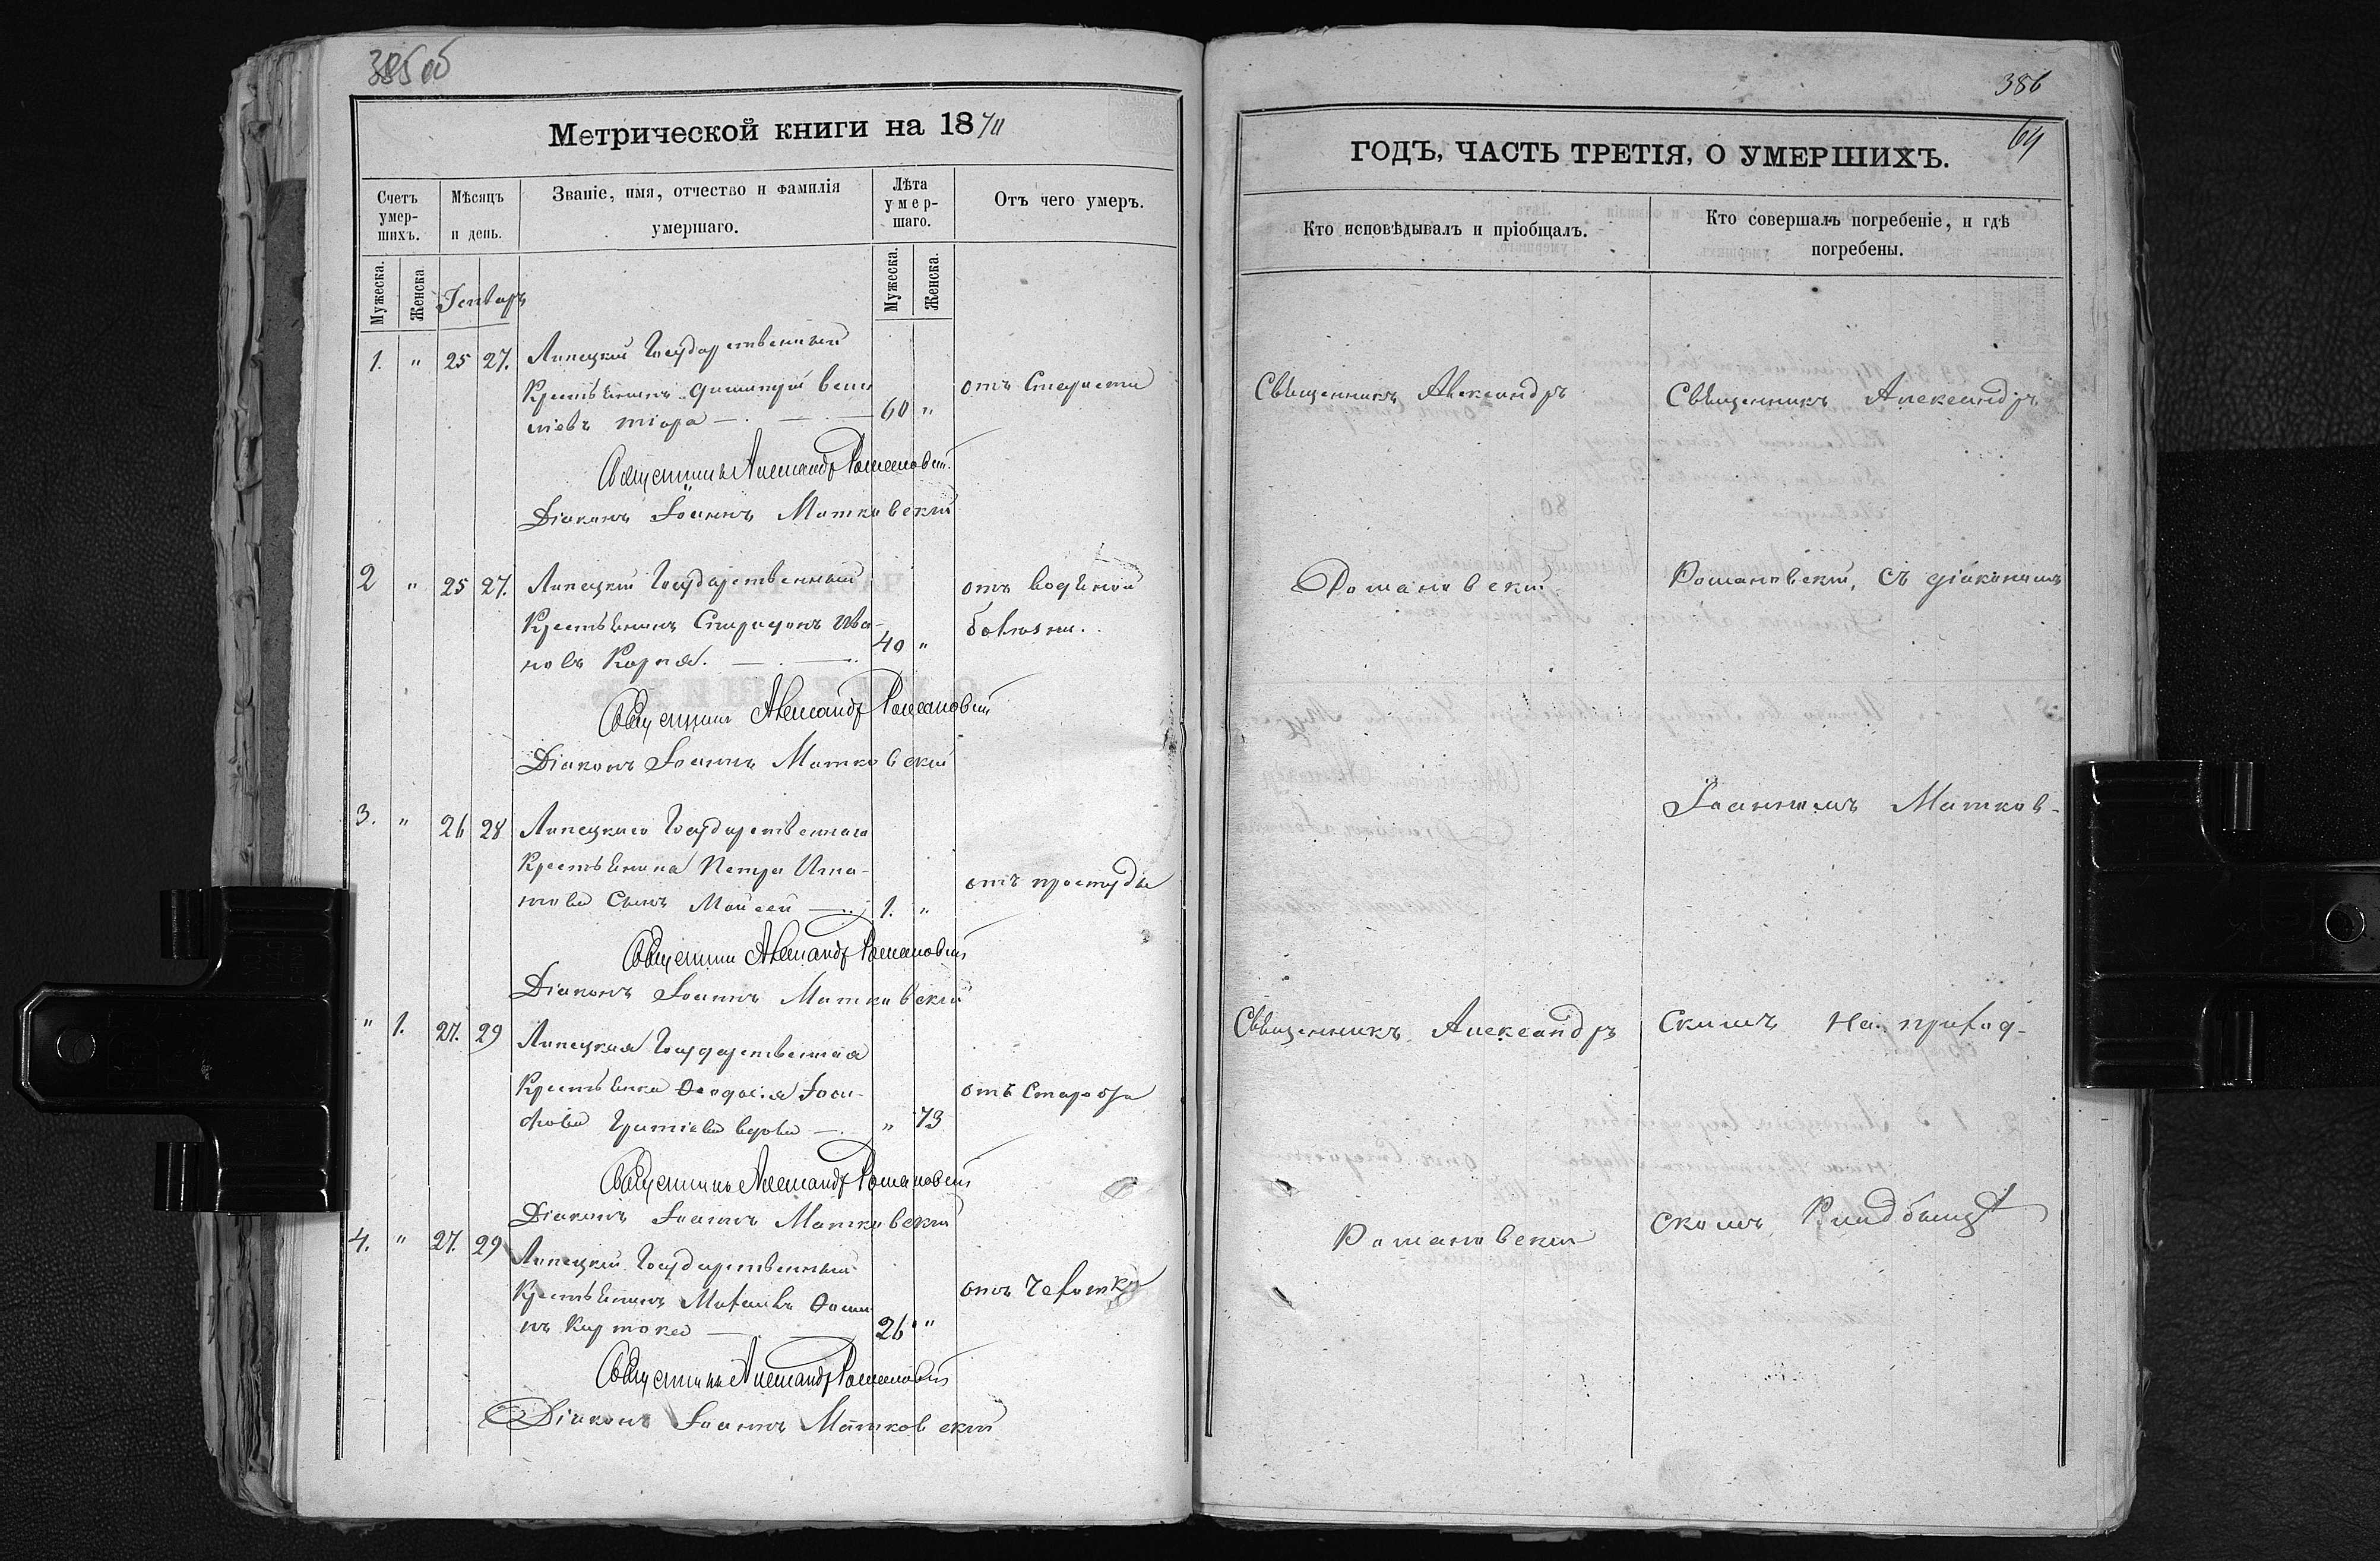 385 об
Метрической книги на 1870
Счетъ умер-шихъ.
Мѣсяцъ и день.
Званіе, имя, отчество и фамилія умершаго.
Лѣта умер-шаго.
Отъ чего умеръ.
Мужеска.
Женска.
Мужеска.
Женска.
1. " 25 27. Липецкій Государственный
Крестьянинъ Димитрій Васи
ліевъ 60 "
отъ Старости
Священникъ Александр Романовскій
Діаконъ Іоаннъ Матковскій
2 " 25 27. Липецкій Государственный
Крестьянинъ Спиридонъ Ива-
новъ 40 "
отъ водяной
болезни.
Священникъ Александр Романовскій
Діаконъ Іоаннъ Матковскій
3. " 26 28 Липецкаго Государственнаго
Крестьянина Петра Игна-
това Сынъ Мойсей 1. "
отъ простуды
Священникъ Александр Романовскій
Діаконъ Іоаннъ Матковскій
" 1. 27. 29 Липецкая Государственная
Крестьянка Ѳеодосія Іоси-
фова вдова " 73
отъ Старости
Священникъ Александр Романовскій
Діаконъ Іоаннъ Матковскій
4. " 27. 29 Липецкій Государственный
Крестьянинъ Ѳоми
нъ 26 "
отъ Чахотки
Священникъ Александр Романовскій
Діаконъ Іоаннъ Матковскій
386
64
ГОДЪ, ЧАСТЬ ТРЕТІЯ, О УМЕРШИХЪ.
Кто исповѣдывалъ и пріобщалъ.
Кто совершалъ погребеніе, и гдѣ погребены.
Священникъ Александръ
Романовскій
Священникъ Александръ
Романовскій
Священникъ Александръ
Романовскій, съ діакономъ
Іоанномъ Матков-
скимъ На приход-
скомъ Кладбищѣ